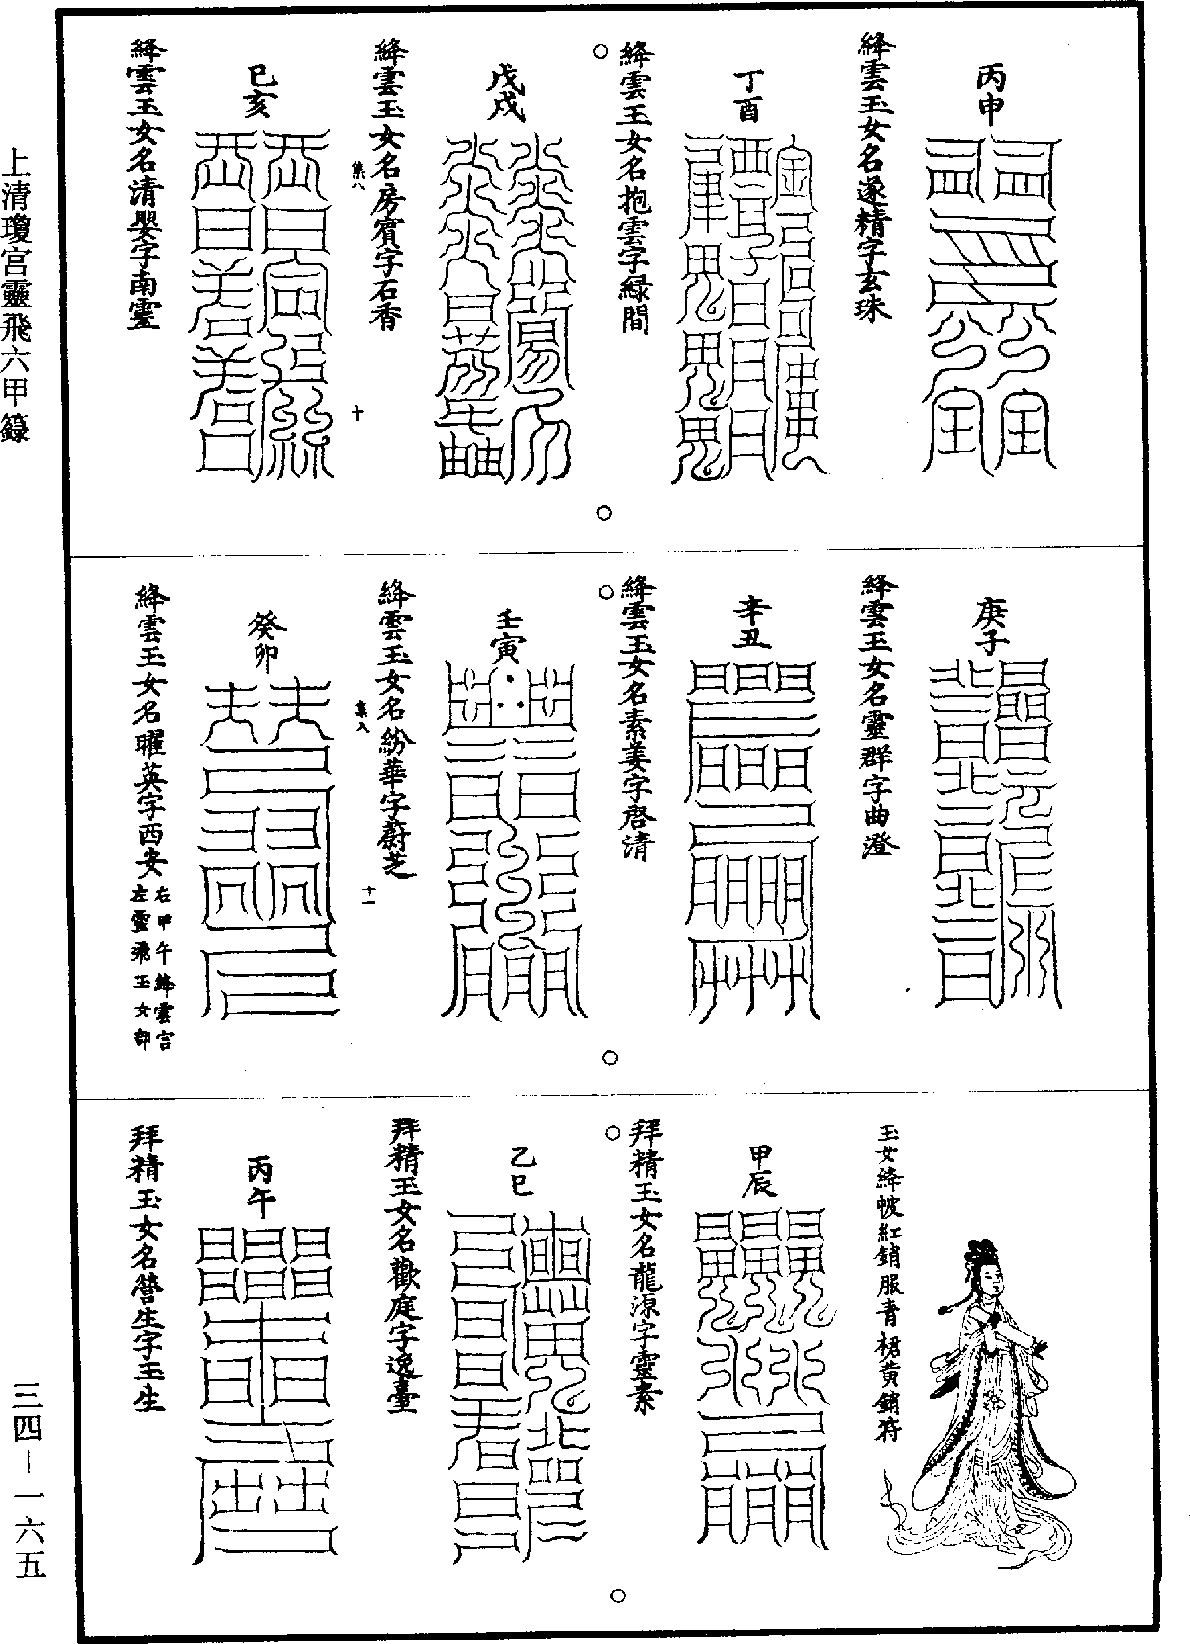 丙申
絳雲玉女名遂精字玄珠
丁酉
絳雲玉女名抱雲字綠間
戊戌
絳雲玉女名房賓字石香
集八
十
巳亥
絳雲玉女名清嬰字南靈
庚子
絳雲玉女名靈群字曲澄
辛丑
絳雲玉女名素姜字啓清
壬寅
絳雲玉女名紛華字蔚芝
集八
十一
癸卯
絳雲玉女名曜英字西安
右甲午絳雲宫
左靈飛玉女部
玉女絳帔紅銷服青裙黄銷符
甲辰
拜精玉女名龍源字靈素
乙巳
拜精玉女名歡庭字逸臺
丙午
拜精玉女名營生字玉生
上清瓊宫靈飛六甲籙
三四—一六五